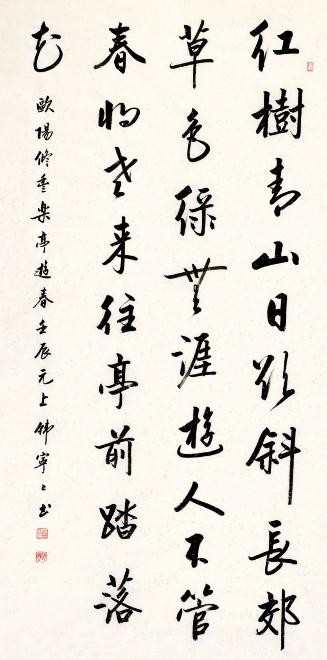 紅樹青山日欲斜長郊
草色綠無涯遊人不管
春將老来往亭前踏落
花
歐陽修豐樂亭遊春壬辰元上韓寧〻書